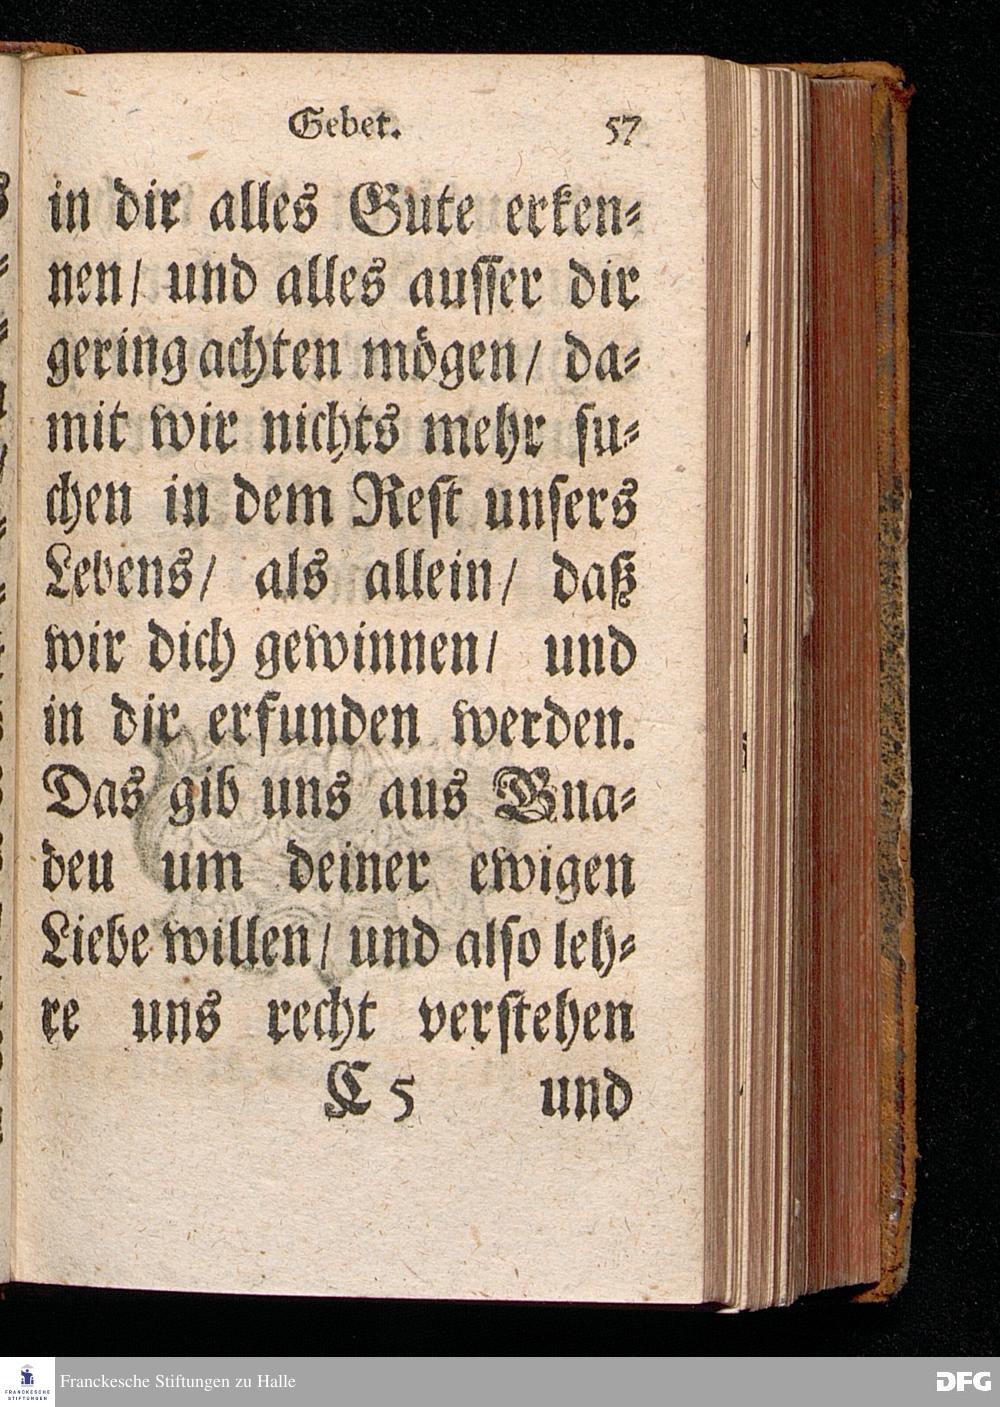 Gebet. 57
in dir alles Gute erken⸗
nen/ und alles auſſer dir
gering achten mögen/ da⸗
mit wir nichts mehr ſu⸗
chen in dem Reſt unſers
Lebens/ als allein/ daß
wir dich gewinnen/ und
in dir erfunden werden.
Das gib uns aus Gna⸗
deu um deiner ewigen
Liebe willen/ und alſo leh⸗
re uns recht verſtehen
C 5 und
FRANCKESCHE
STIFTUNGEN
Franckesche Stiftungen zu Halle
DFG